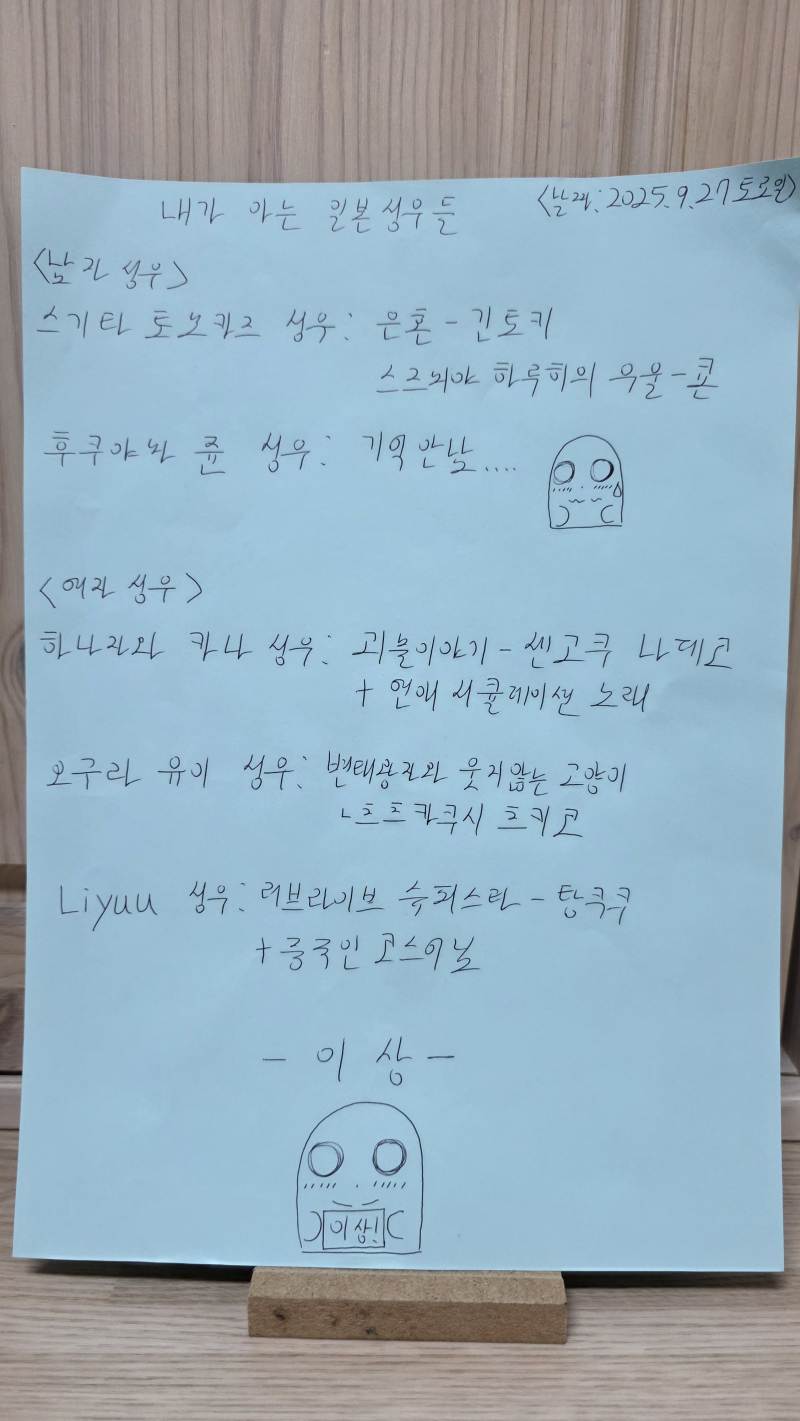 내가 아는 일본성우들
<날짜: 2025.9.27 토요일>
<남자 성우>
스기타 토모카즈 성우: 은혼 - 긴토키
스즈미야 하루히의 우울 - 쿈
후쿠야마 쥰 성우: 기억안남....
<여자 성우>
하나자와 카나 성우: 괴물이야기 - 센고쿠 나데코
+ 연애 서큘레이션 노래
오구라 유이 성우: 변태왕자와 웃지않는 고양이
- 츠츠카쿠시 츠키코
Liyuu 성우: 러브라이브 슈퍼스타 - 탕쿠쿠
+ 중국인 코스어님
- 이 상 -
이상!